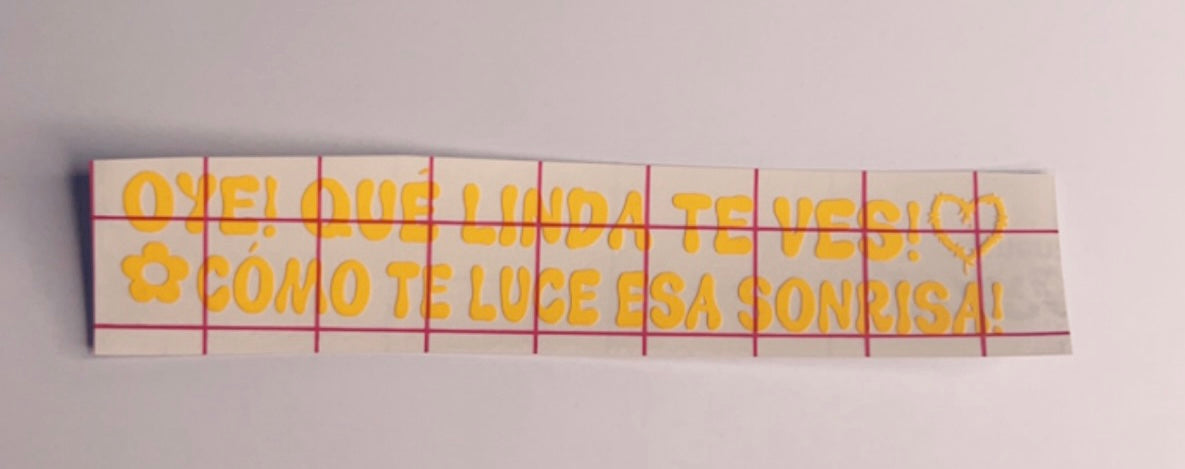 OYE! QUÉ LINDA TE VES!
CÓMO TE LUCE ESA SONRISA!